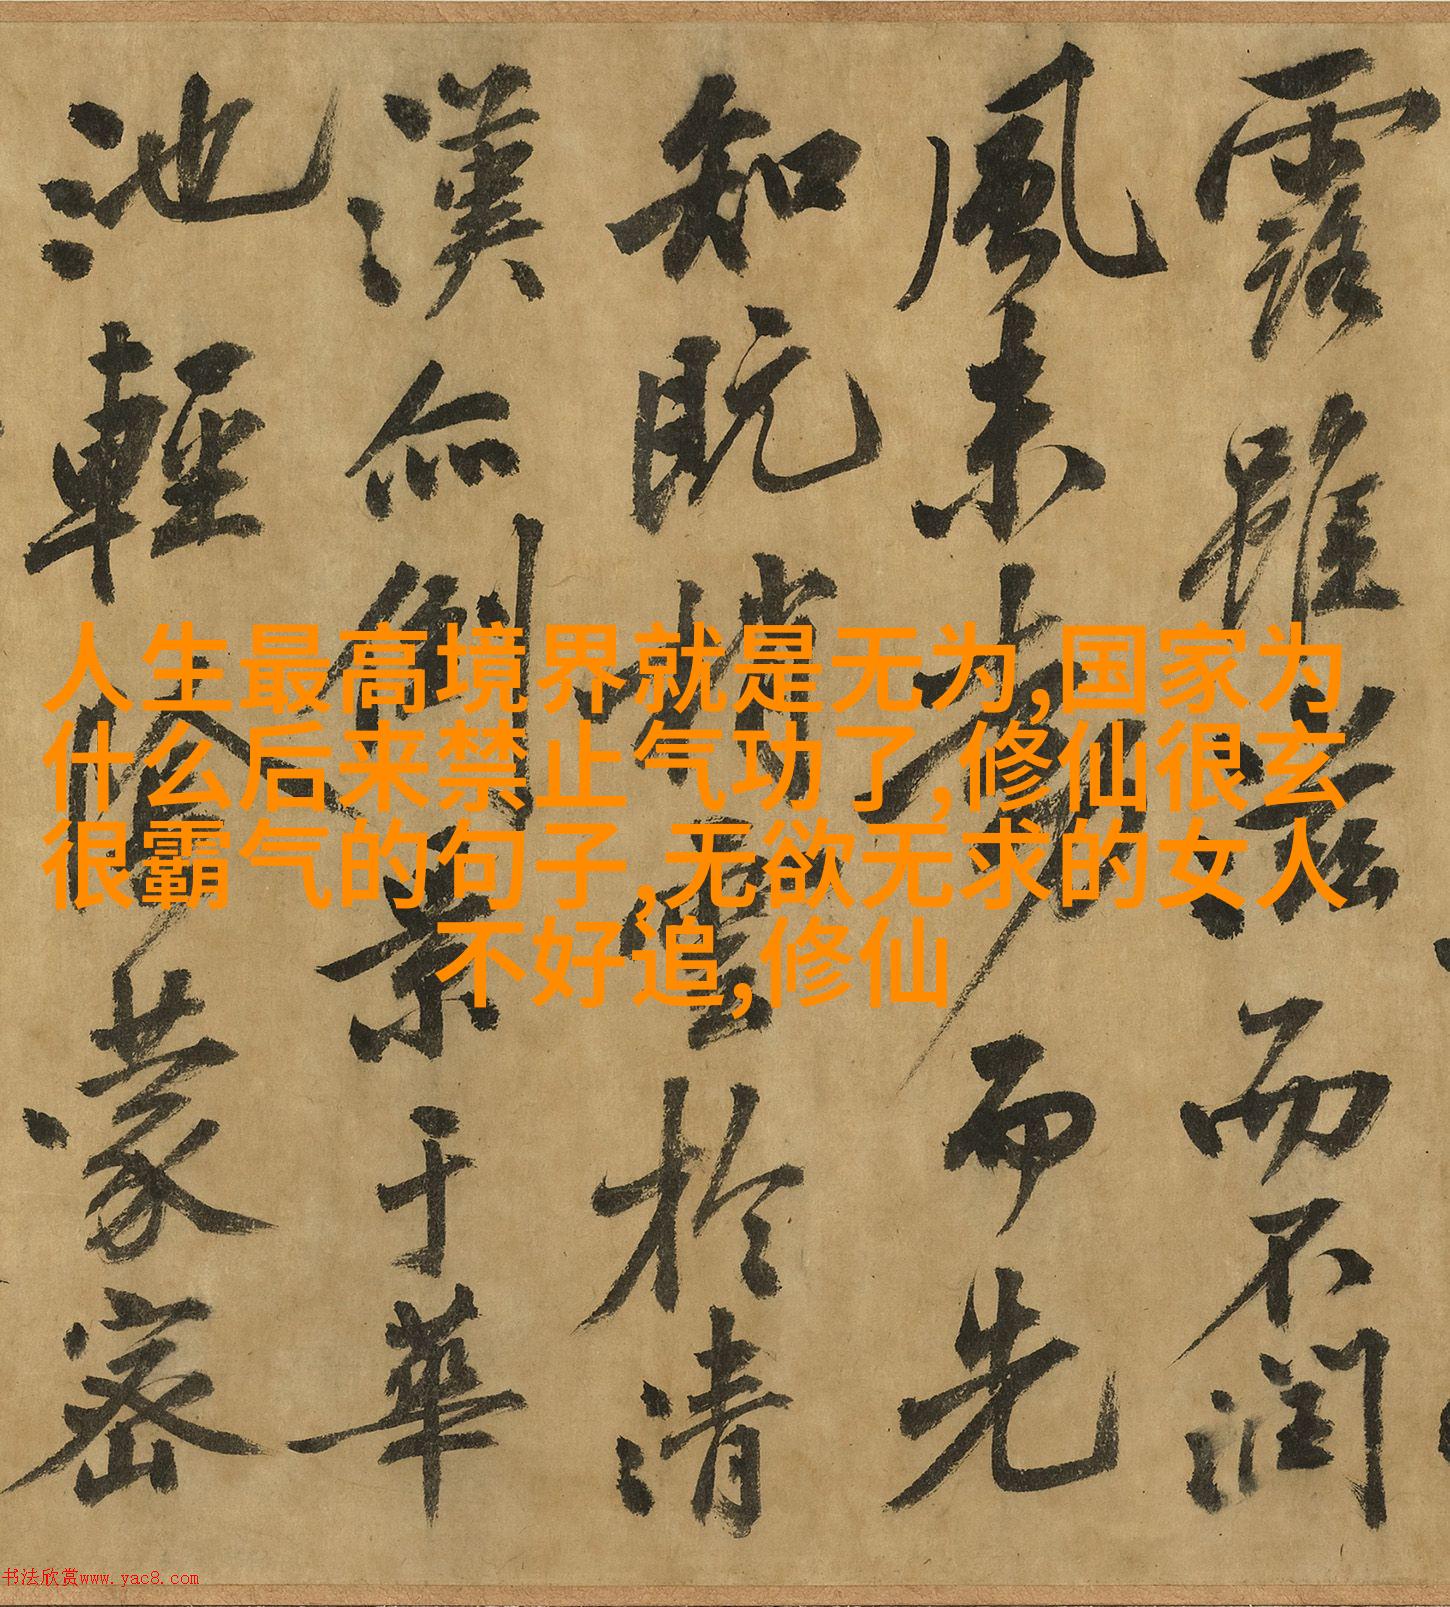 露雖滋而不潤
風未動而先
知既梢雲於清
漢亦倒景于華
池輕陰蒙密
人生最高境界就是无为,国家为
什么后来禁止气功了,修仙很玄
很霸气的句子,无欲无求的女人
不好追,修仙
书法欣赏www.yac8.com